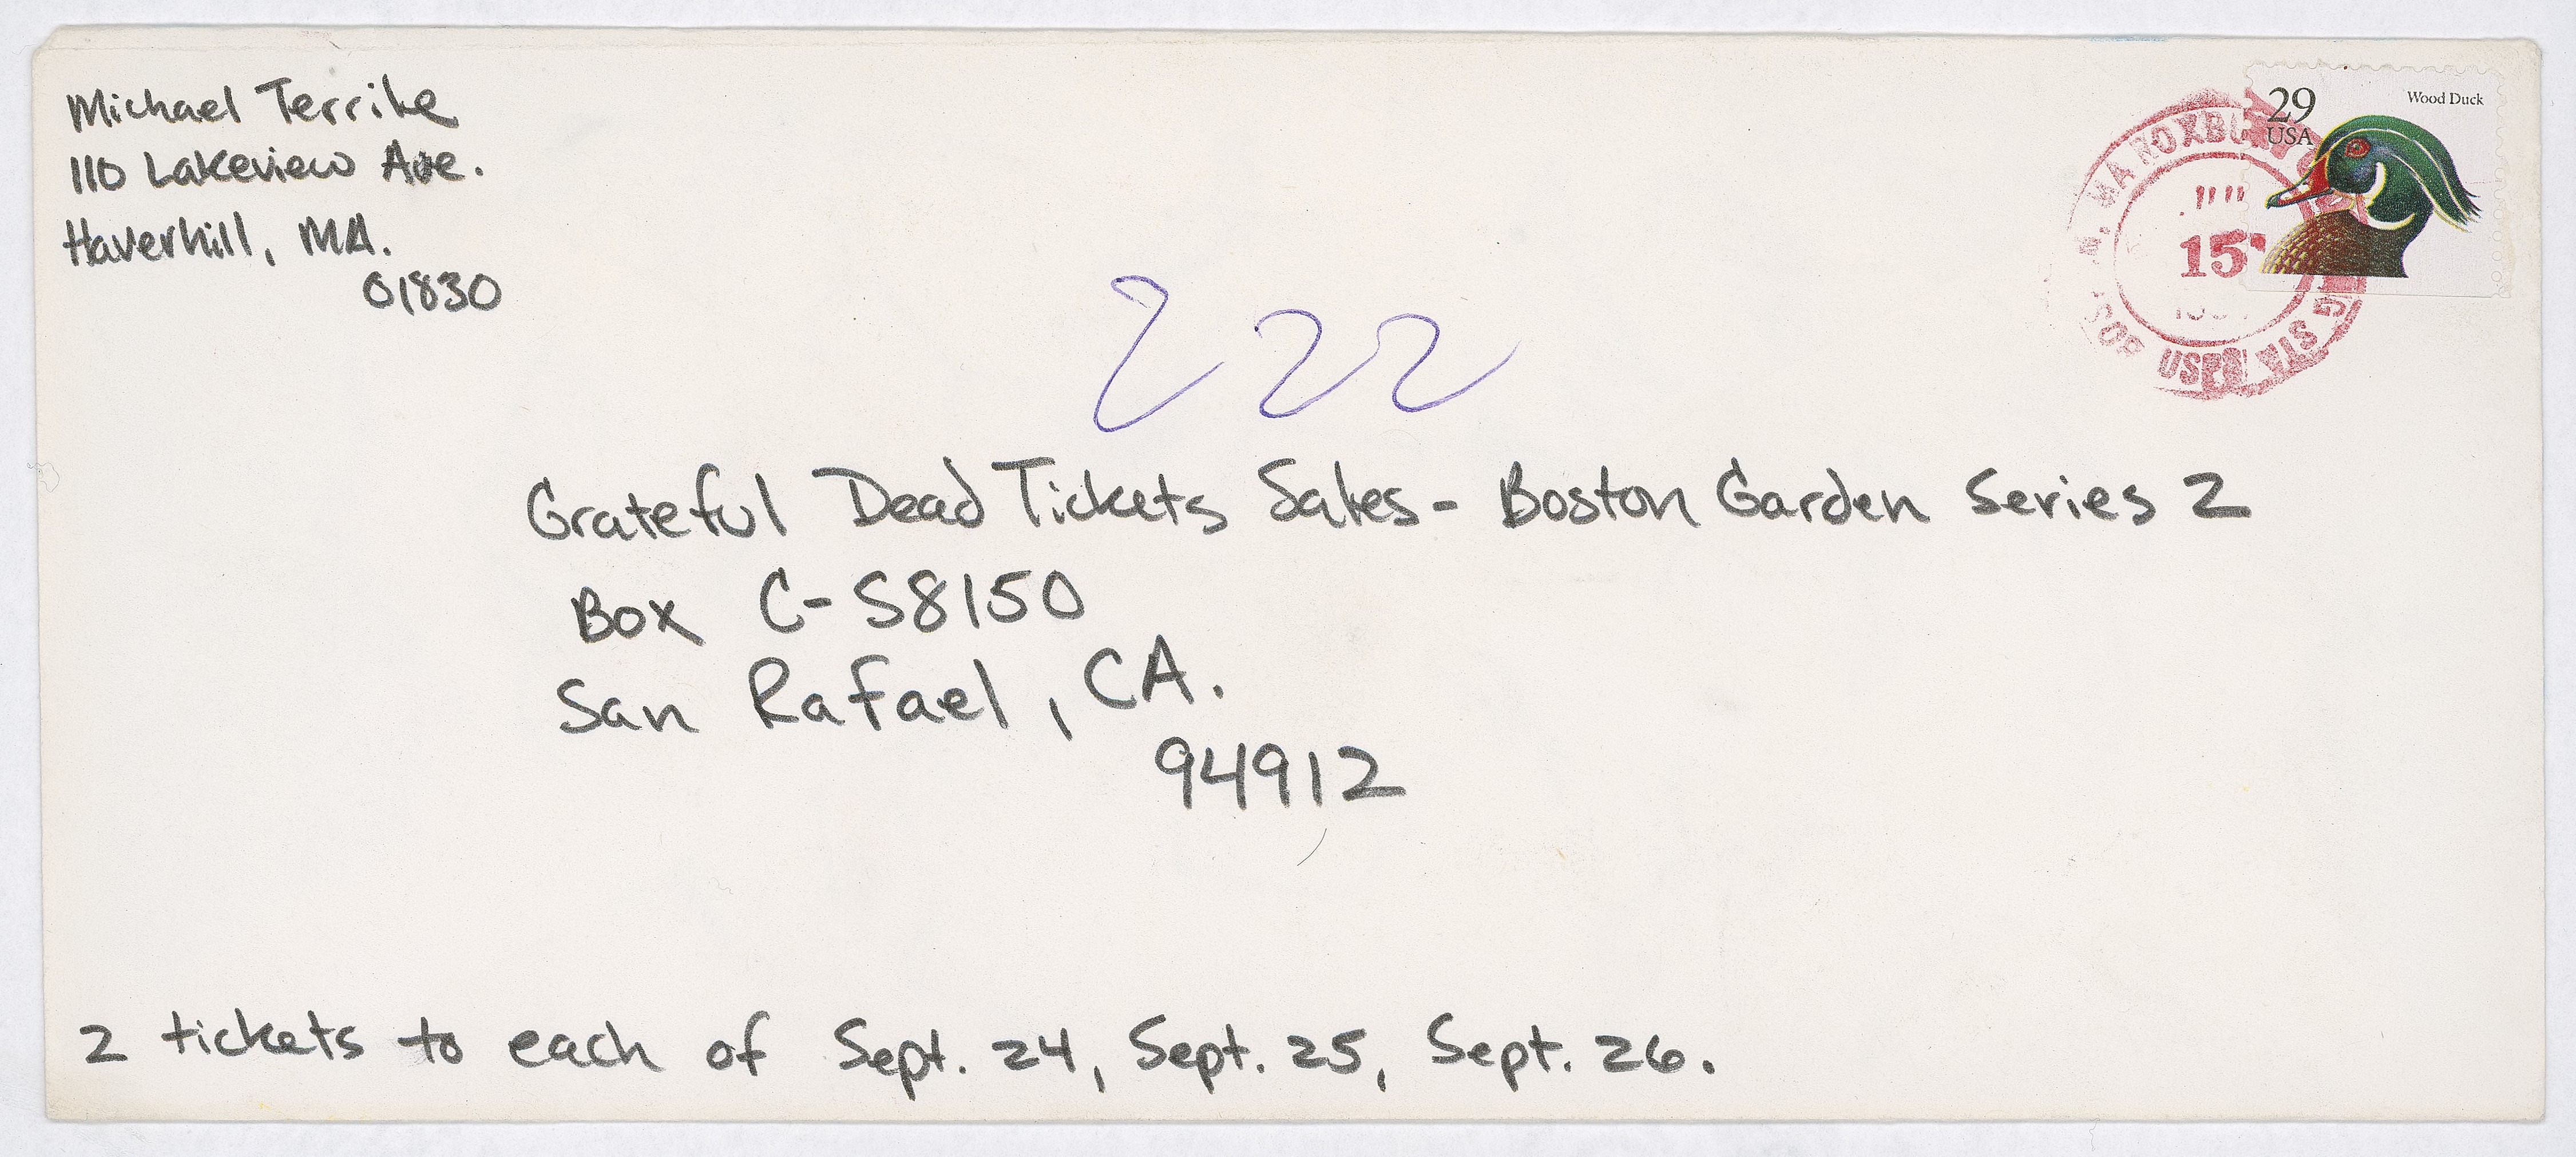 Michael Terrile
110 Lakeview Ave.
Haverhill, MA.
01830
29
USA
Wood Duck
MA ROXBURY
15
USPS
222
Grateful Dead Tickets Sales - Boston Garden Series 2
Box C-S8150
San Rafael, CA.
94912
2 tickets to each of Sept. 24, Sept. 25, Sept. 26.